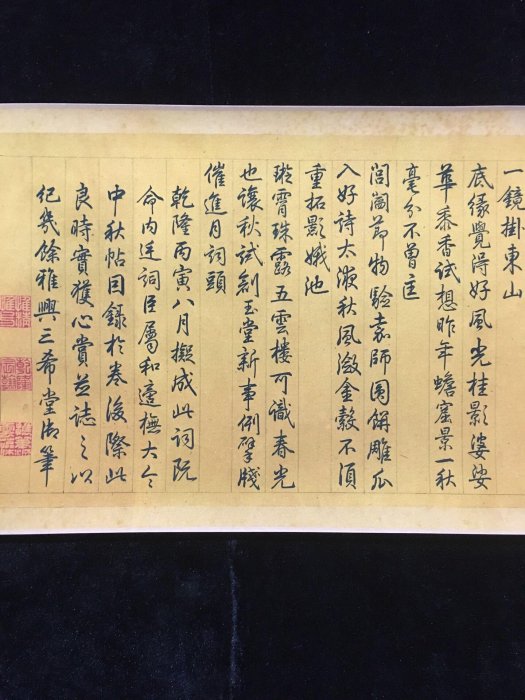 一鏡掛東山
底緣覺得好風光桂影婆娑
華黍香試想昨年蟾窟景一秋
毫分不曾匡
閶闔節物驗嘉師圍餅雕瓜
入好詩太液秋風激金縠不須
重拓影娥池
璇霄珠露五雲樓可識春光
也讓秋試劍玉堂新事例擘牋
催進月詞頭
乾隆丙寅八月擬成此詞既
命内廷詞臣屬和適橅大令
中秋帖因錄於卷後際此
良時實獲心賞並誌之以
紀幾餘雅興三希堂御筆